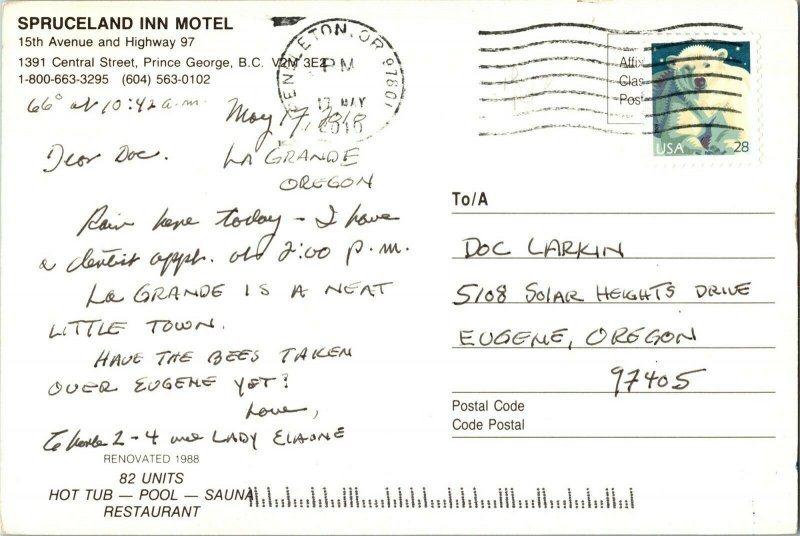 SPRUCELAND INN MOTEL
15th Avenue and Highway 97
1391 Central Street, Prince George, B.C. V2M 3E2
1-800-663-3295 (604) 563-0102
PENDLETON, OR 97801
PM
17 MAY
2010
Affix
Clas
Post
USA 28
66° at 10:42 a.m.
May 17, 2010
Dear Doc.
LA GRANDE
OREGON
Rain here today - I have
a dentist appt. at 2:00 p.m.
LA GRANDE IS A NEAT
LITTLE TOWN.
HAVE THE BEES TAKEN
OVER EUGENE YET?
Love,
2-4 LADY ELAINE
RENOVATED 1988
82 UNITS
HOT TUB — POOL — SAUNA
RESTAURANT
To/A
DOC LARKIN
5108 SOLAR HEIGHTS DRIVE
EUGENE, OREGON
97405
Postal Code
Code Postal